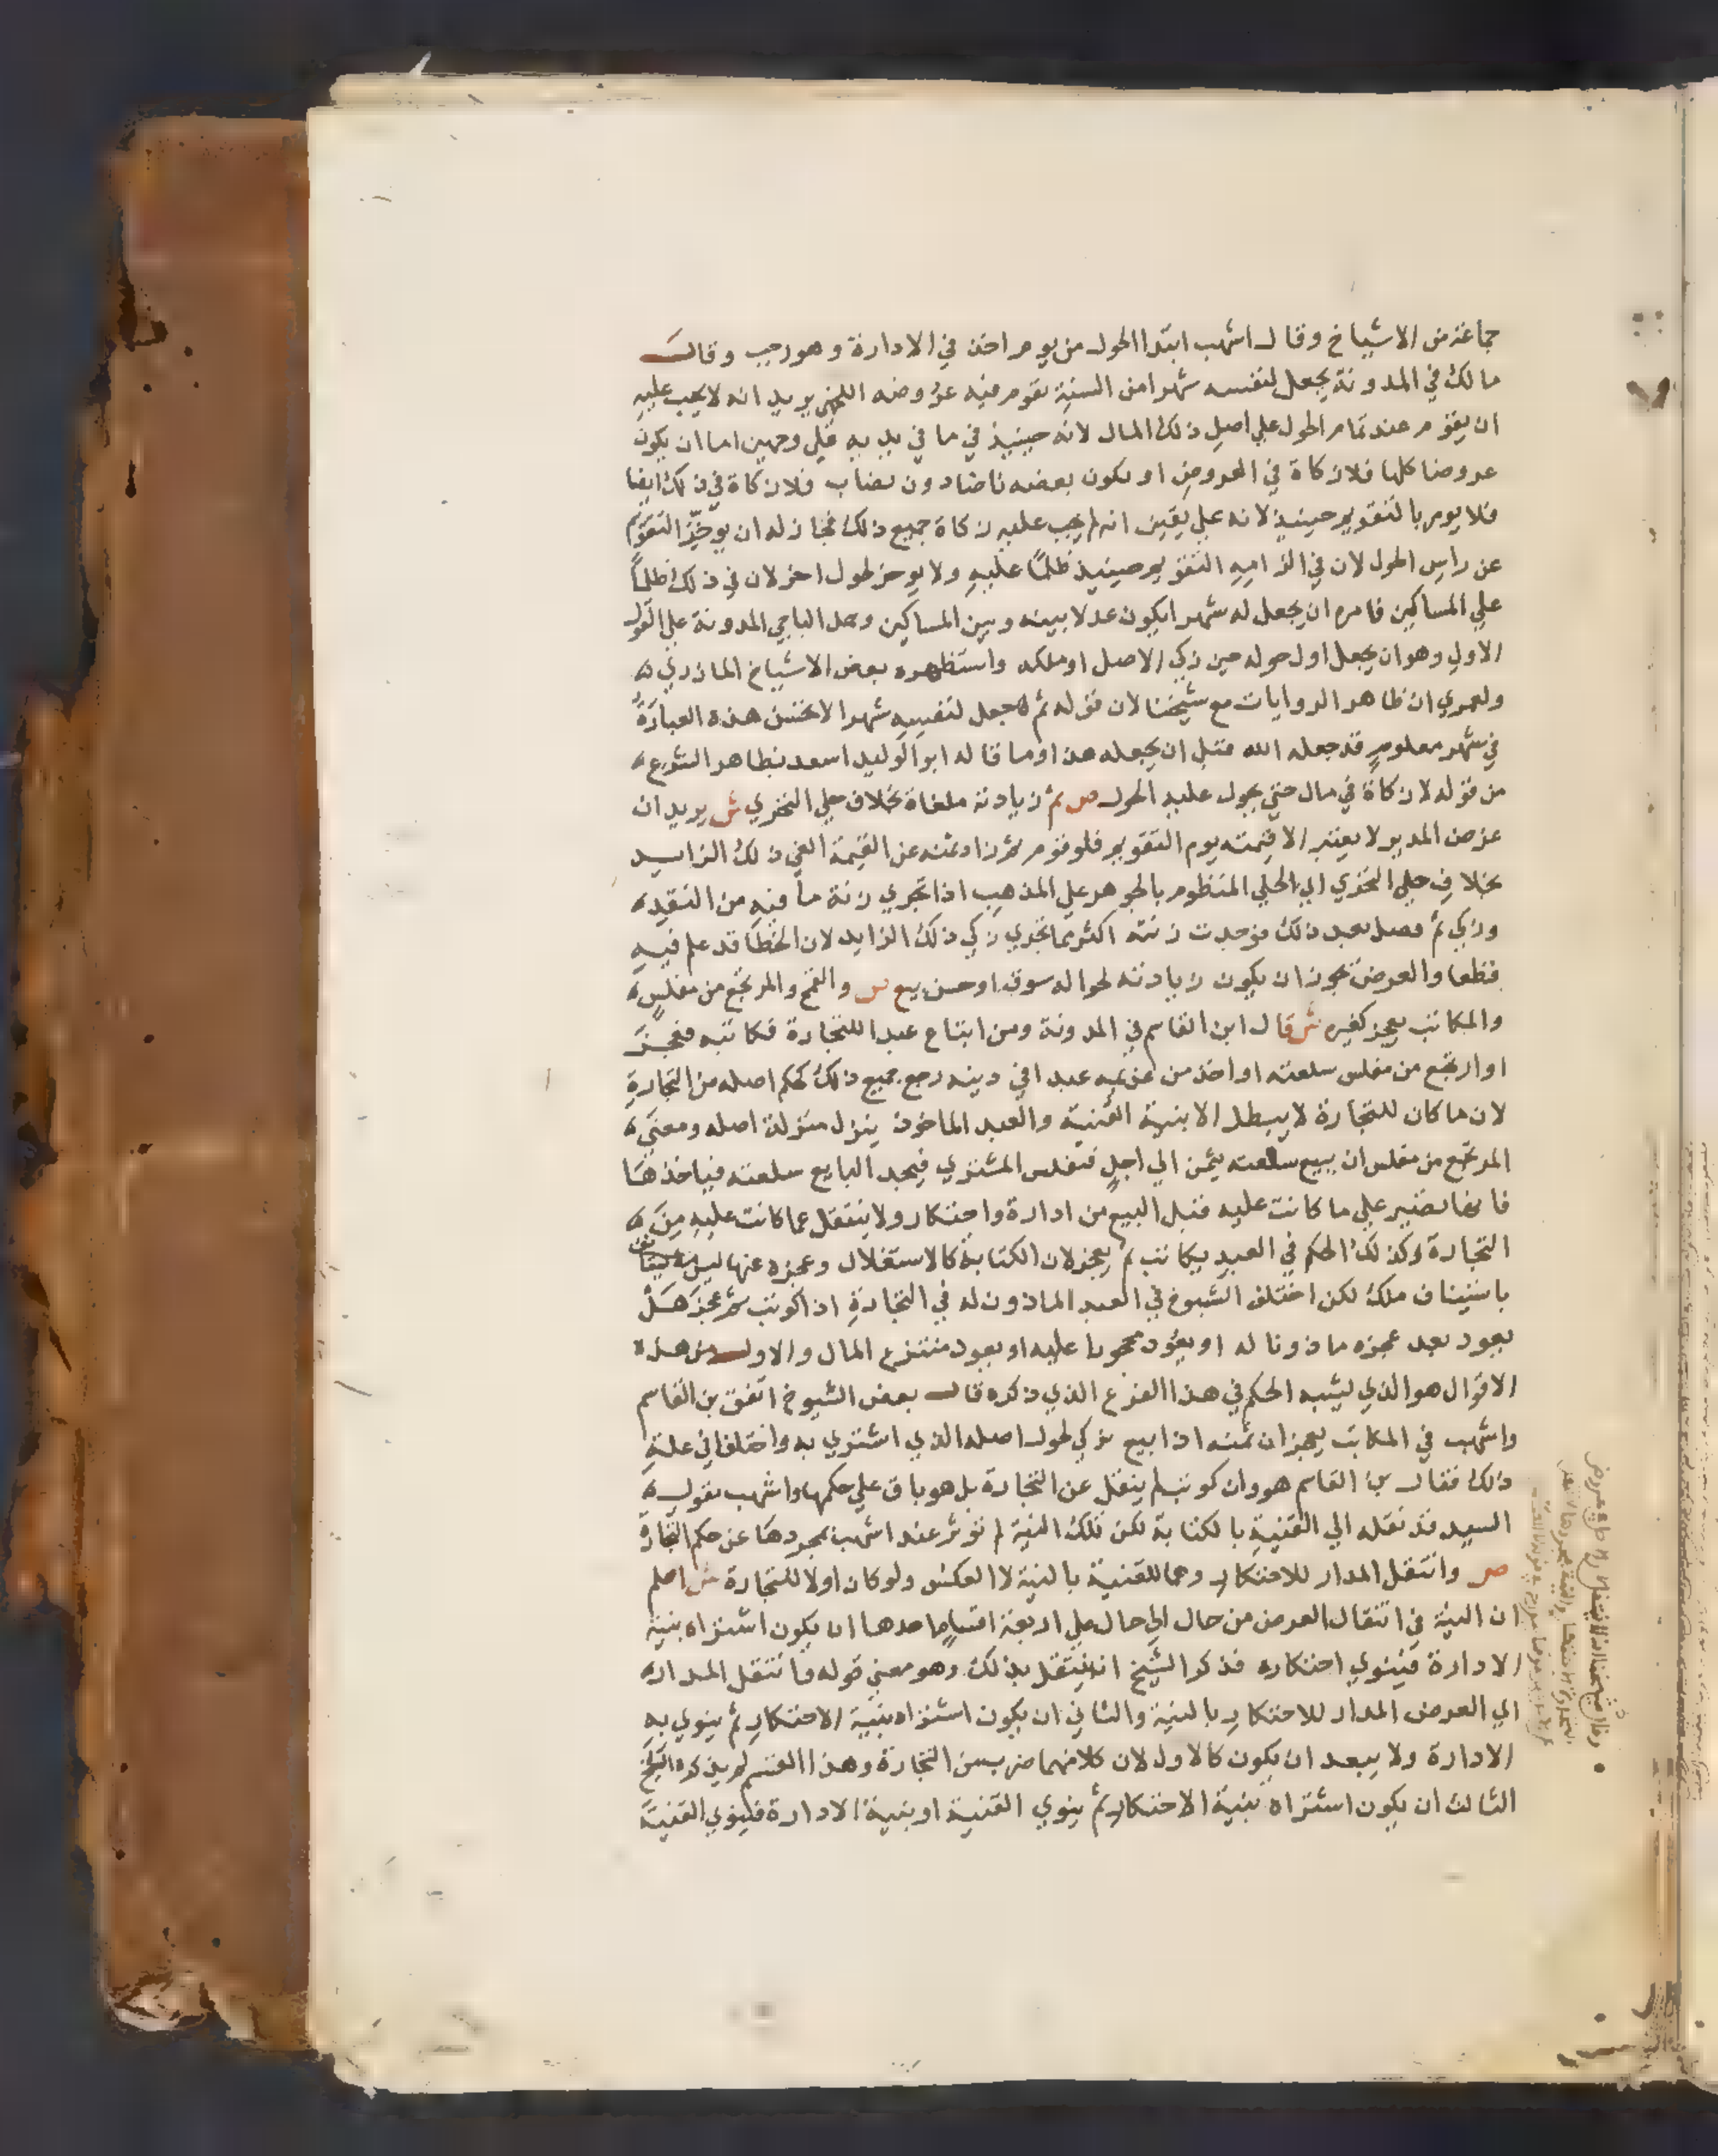 جماعة من الاشياخ وقال اشهب ابتدا الحول من يوم اخذ في الادارة وهو رجب وقال
مالك في المدونة يجعل لنفسه شهرا من السنة يقوم فيه عروضه اللخمي يريد انه لا يجب عليه
ان يقوم عند تمام الحول علي اصل ذلك المال لانه حينيذ في ما في يديه علي وجهين اما ان يكون
عروضا كلها فلا زكاة في العروض او يكون بعضه ناضا دون نصاب فلا زكاة في ذلك ايضا
فلا يومر بالتقويم حينيذ لانه علي يقين انه لم يجب عليه زكاة جميع ذلك فجاز له ان يوخر التقويم
عن راس الحول لان في الزامه التقويم حينيذ ظلما عليه ولا يوخر لحول اخر لان في ذلك ظلما
علي المساكين فامره ان يجعل له شهرا يكون عدلا بينه وبين المساكين وحمل الباجي المدونة علي القول
الاول وهو ان يجعل اول حوله حين زكي الاصل او ملكه واستظهره بعض الاشياخ المازري
ولعمري ان ظاهر الروايات مع شيخنا لان قوله ثم جعل لنفسه شهرا لا تحسن هذه العبارة
في شهر معلوم قد جعله الله قبل ان يجعله هذا وما قاله ابو الوليد اسعد بظاهر الشرع
من قوله لا زكاة في مال حتي يحول عليه الحول ص ثم زيادته ملغاة بخلاف حلي التحري ش يريد ان
عرض المدير لا يعتبر الا قيمته يوم التقويم فلو قوم ثم زاد ثمنه عن القيمة الغي ذلك الزايد
بخلاف حلي التحري اي الحلي المنظوم بالجوهر علي المذهب اذا تحري زنة ما فيه من النقد
وزكي ثم فصل بعد ذلك فوجدت زنته اكثر مما تحري زكي ذلك الزايد لان الخطا قد علم فيه
قطعا والعرض يجوز ان يكون زيادته لحواله سوق او حسن بيع ص والقمح والمرتجع من مفلس
والمكاتب يعجز كغيره ش قال ابن القاسم في المدونة ومن ابتاع عبدا للتجارة فكاتبه فعجز
او ارتجع من مفلس سلعته او اخذ من غريمه عبدا في دينه رجع جميع ذلك لحكم اصله من التجارة
لان ما كان للتجارة لا يبطل الا بنية القنية والعبد الماخوذ ينزل منزلة اصله ومعني
المرتجع من مفلس ان يبيع سلعته بثمن الي اجل فيفلس المشتري فيجد البايع سلعته فياخذها
فانها تصير علي ما كانت عليه قبل البيع من ادارة واحتكار ولا ينتقل عما كانت عليه من
التجارة وكذلك الحكم في العبد يكاتب ثم يعجز لان الكتابة كالاستغلال وعجزه عنها ليس
باستيناف ملك لكن اختلف الشيوخ في العبد الماذون له في التجارة اذا كوتب ثم عجز هل
يعود بعد عجزه ماذونا له او يعود محجورا عليه او يعود منتزع المال والاول من هذه
الاقوال هو الذي يشبه الحكم في هذا الفرع الذي ذكره قال بعض الشيوخ اتفق بن القاسم
واشهب في المكاتب يعجز ان ثمنه اذا بيع يزكي لحول اصله الذي اشتري به واختلفا في علة
ذلك فقال بن القاسم هو وان كوتب لم ينقل عن التجارة بل هو باق علي حكمها واشهب يقول
السيد قد نقله الي القنية بالكتابة لكن تلك النية لم توثر عند اشهب بمجردها عن حكم التجارة
ص وانتقل المدار للاحتكار وهما للقنية بالنية لا العكس ولو كان اولا للتجارة ش اعلم
ان النية في انتقال العرض من حال الي حال علي اربعة اقسام احدها ان يكون اشتراه بنية
الادارة فينوي احتكاره فذكر الشيخ انه ينتقل بذلك وهو معني قوله وانتقل المدار
اي العرض المدار للاحتكار بالنية والثاني ان يكون اشتراه بنية الاحتكار ثم ينوي به
الادارة ولا يبعد ان يكون كالاول لان كلا منهما ضرب من التجارة وهذا القسم لم يذكره الشيخ
الثالث ان يكون اشتراه بنية الاحتكار ثم ينوي القنية او بنية الادارة فينوي القنية